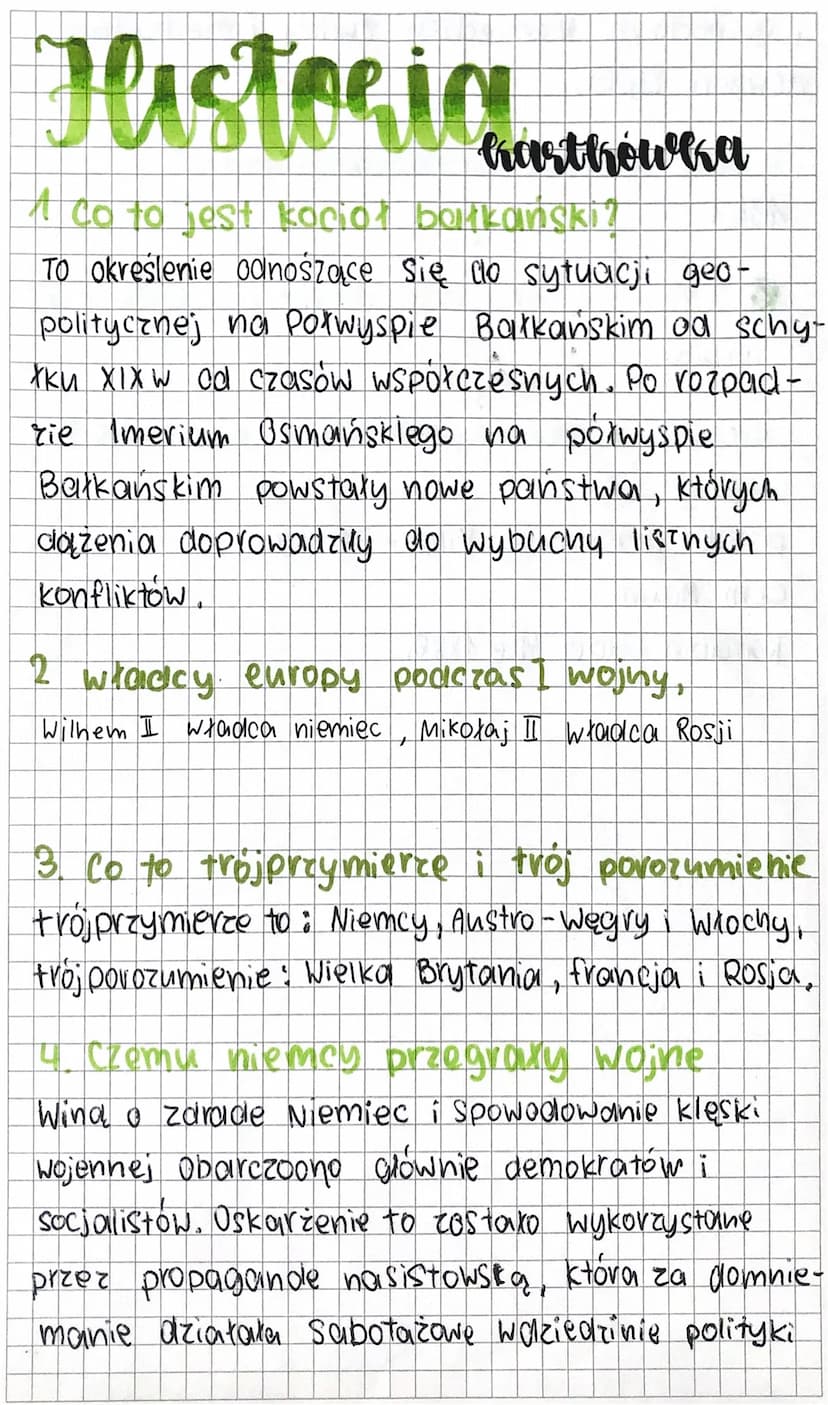 Historia
kartkówka
1 Co to jest kocioł bałkański?
To określenie odnoszące się do sytuacji geo-
politycznej na Połwyspie Bałkańskim od schy-
łku XIX w od czasów współczesnych. Po rozpad-
zie Imerium Osmańskiego na półwyspie
Bałkańskim powstały nowe państwa, których
dążenia doprowadziły do wybuchy licznych
konfliktów.
2 władcy europy podczas I wojny,
Wilhem II władca niemiec, Mikołaj II władca Rosji
3. Co to trójprzymierze i trój porozumienie
trójprzymierze to: Niemcy, Austro-Węgry i Włochy,
trójporozumienie: Wielka Brytania, francja i Rosja.
4. Czemu niemcy przegrały wojne
Winą o zdrade Niemiec i spowodowanie klęski
wojennej obarczoono głównie demokratów i
socjalistów. Oskarżenie to zostało wykorzystane
przez propagande nasistowską, która za domnie-
manie działała sabotażowe wdziedzinie polityki